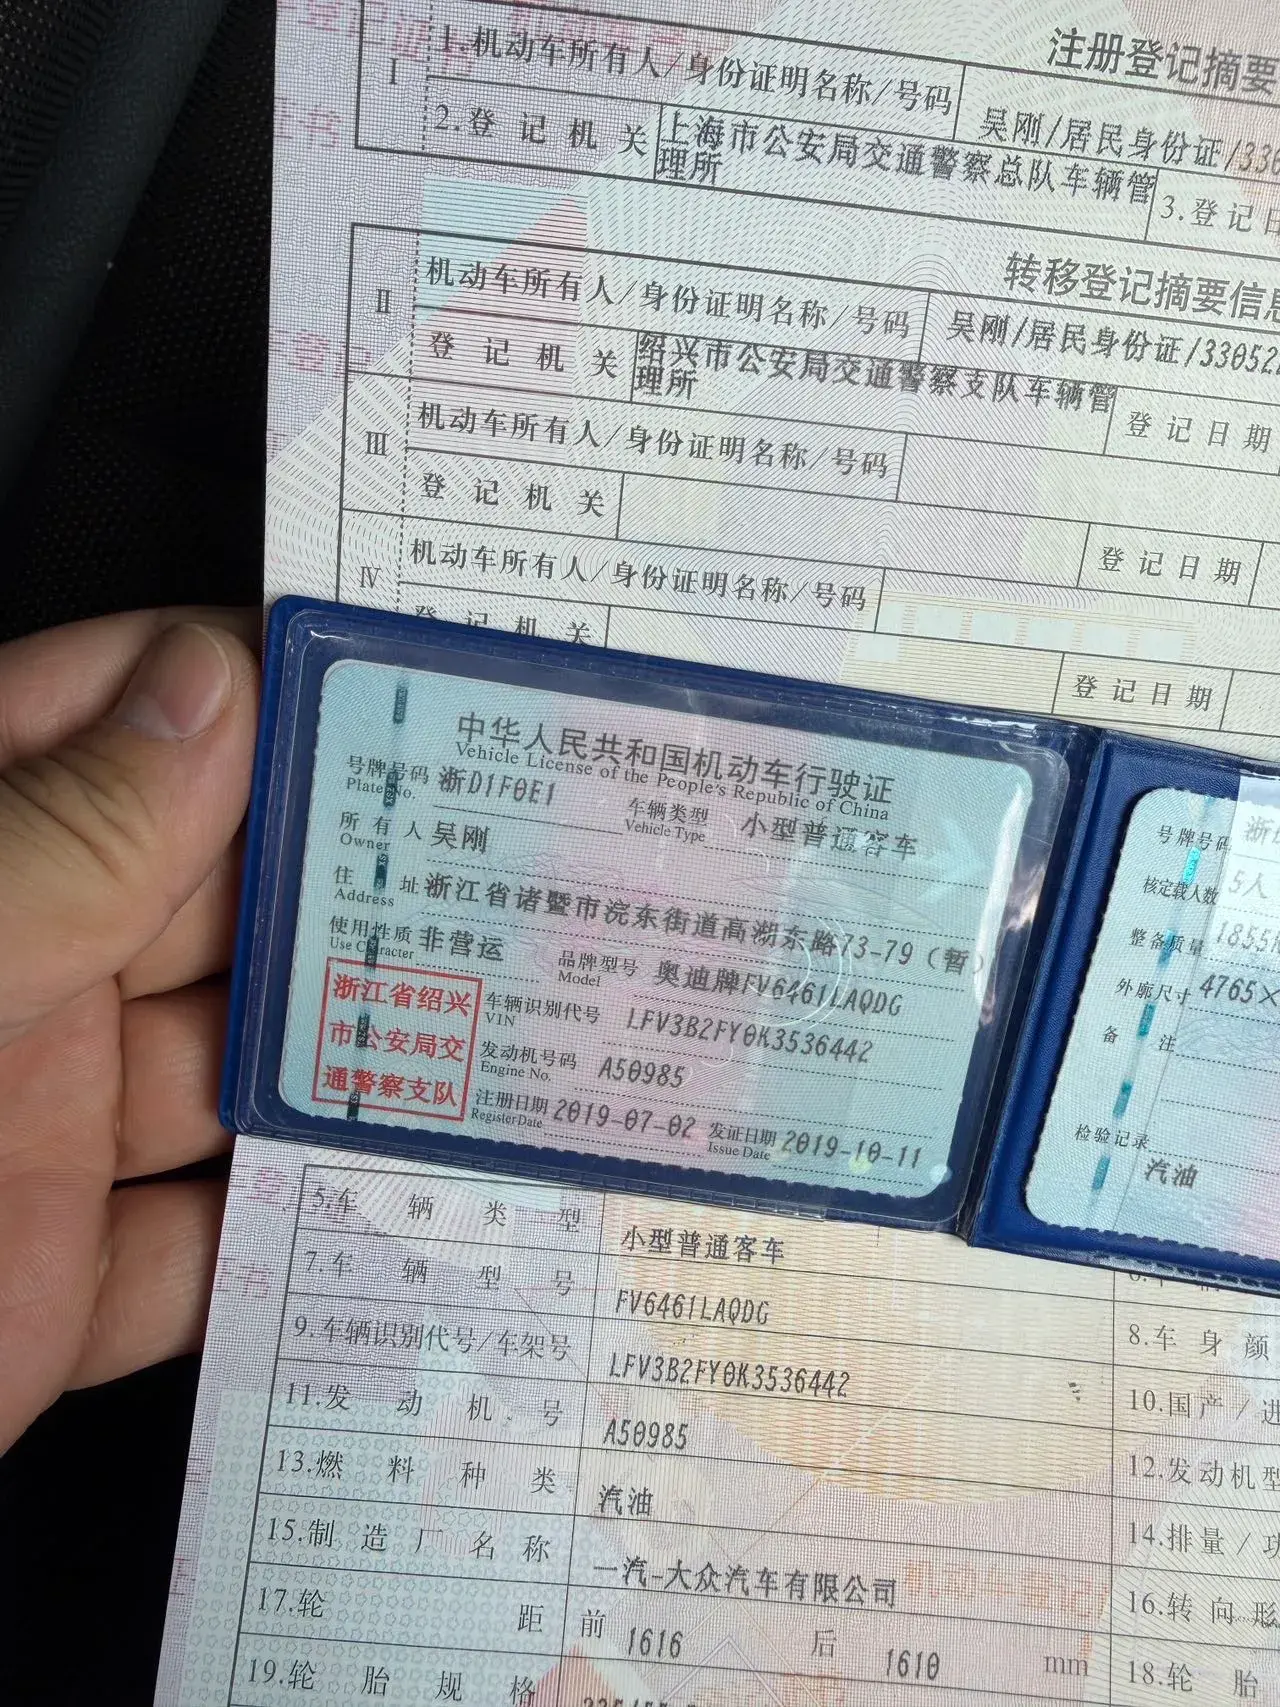 注册登记摘要
I
1.机动车所有人/身份证明名称/号码
吴刚/居民身份证/330
2.登记机关
上海市公安局交通警察总队车辆管
理所
3.登记日
转移登记摘要信息
II
机动车所有人/身份证明名称/号码
吴刚/居民身份证/33052
登记机关
绍兴市公安局交通警察支队车辆管
理所
登记日期
III
机动车所有人/身份证明名称/号码
登记机关
登记日期
IV
机动车所有人/身份证明名称/号码
登记机关
登记日期
中华人民共和国机动车行驶证
Vehicle License of the People's Republic of China
号牌号码 浙D1F0E1
Plate No.
车辆类型 小型普通客车
Vehicle Type
所有人 吴刚
Owner
住址 浙江省诸暨市浣东街道高湖东路73-79（暂）
Address
使用性质 非营运
Use Character
品牌型号 奥迪牌FV6461LAQDG
Model
浙江省绍兴
市公安局交
通警察支队
车辆识别代号 LFV3B2FY0K3536442
VIN
发动机号码 A50985
Engine No.
注册日期 2019-07-02
Register Date
发证日期 2019-10-11
Issue Date
号牌号码 浙
核定载人数 5人
整备质量 1855
外廓尺寸 4765×
备注
检验记录
汽油
5.车辆类型 小型普通客车
7.车辆型号 FV6461LAQDG
8.车身颜
9.车辆识别代号/车架号 LFV3B2FY0K3536442
10.国产/进
11.发动机号 A50985
12.发动机型
13.燃料种类 汽油
14.排量/功
15.制造厂名称 一汽-大众汽车有限公司
16.转向形
17.轮距 前 1616 后 1610 mm
18.轮胎
19.轮胎规格